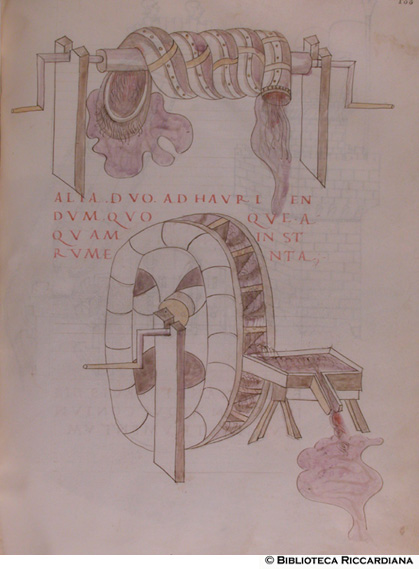 ALIA.DVO.AD HAVRI EN
DVM QVO QVE A
QVAM INST
RVME NTA,
© BIBLIOTECA RICCARDIANA